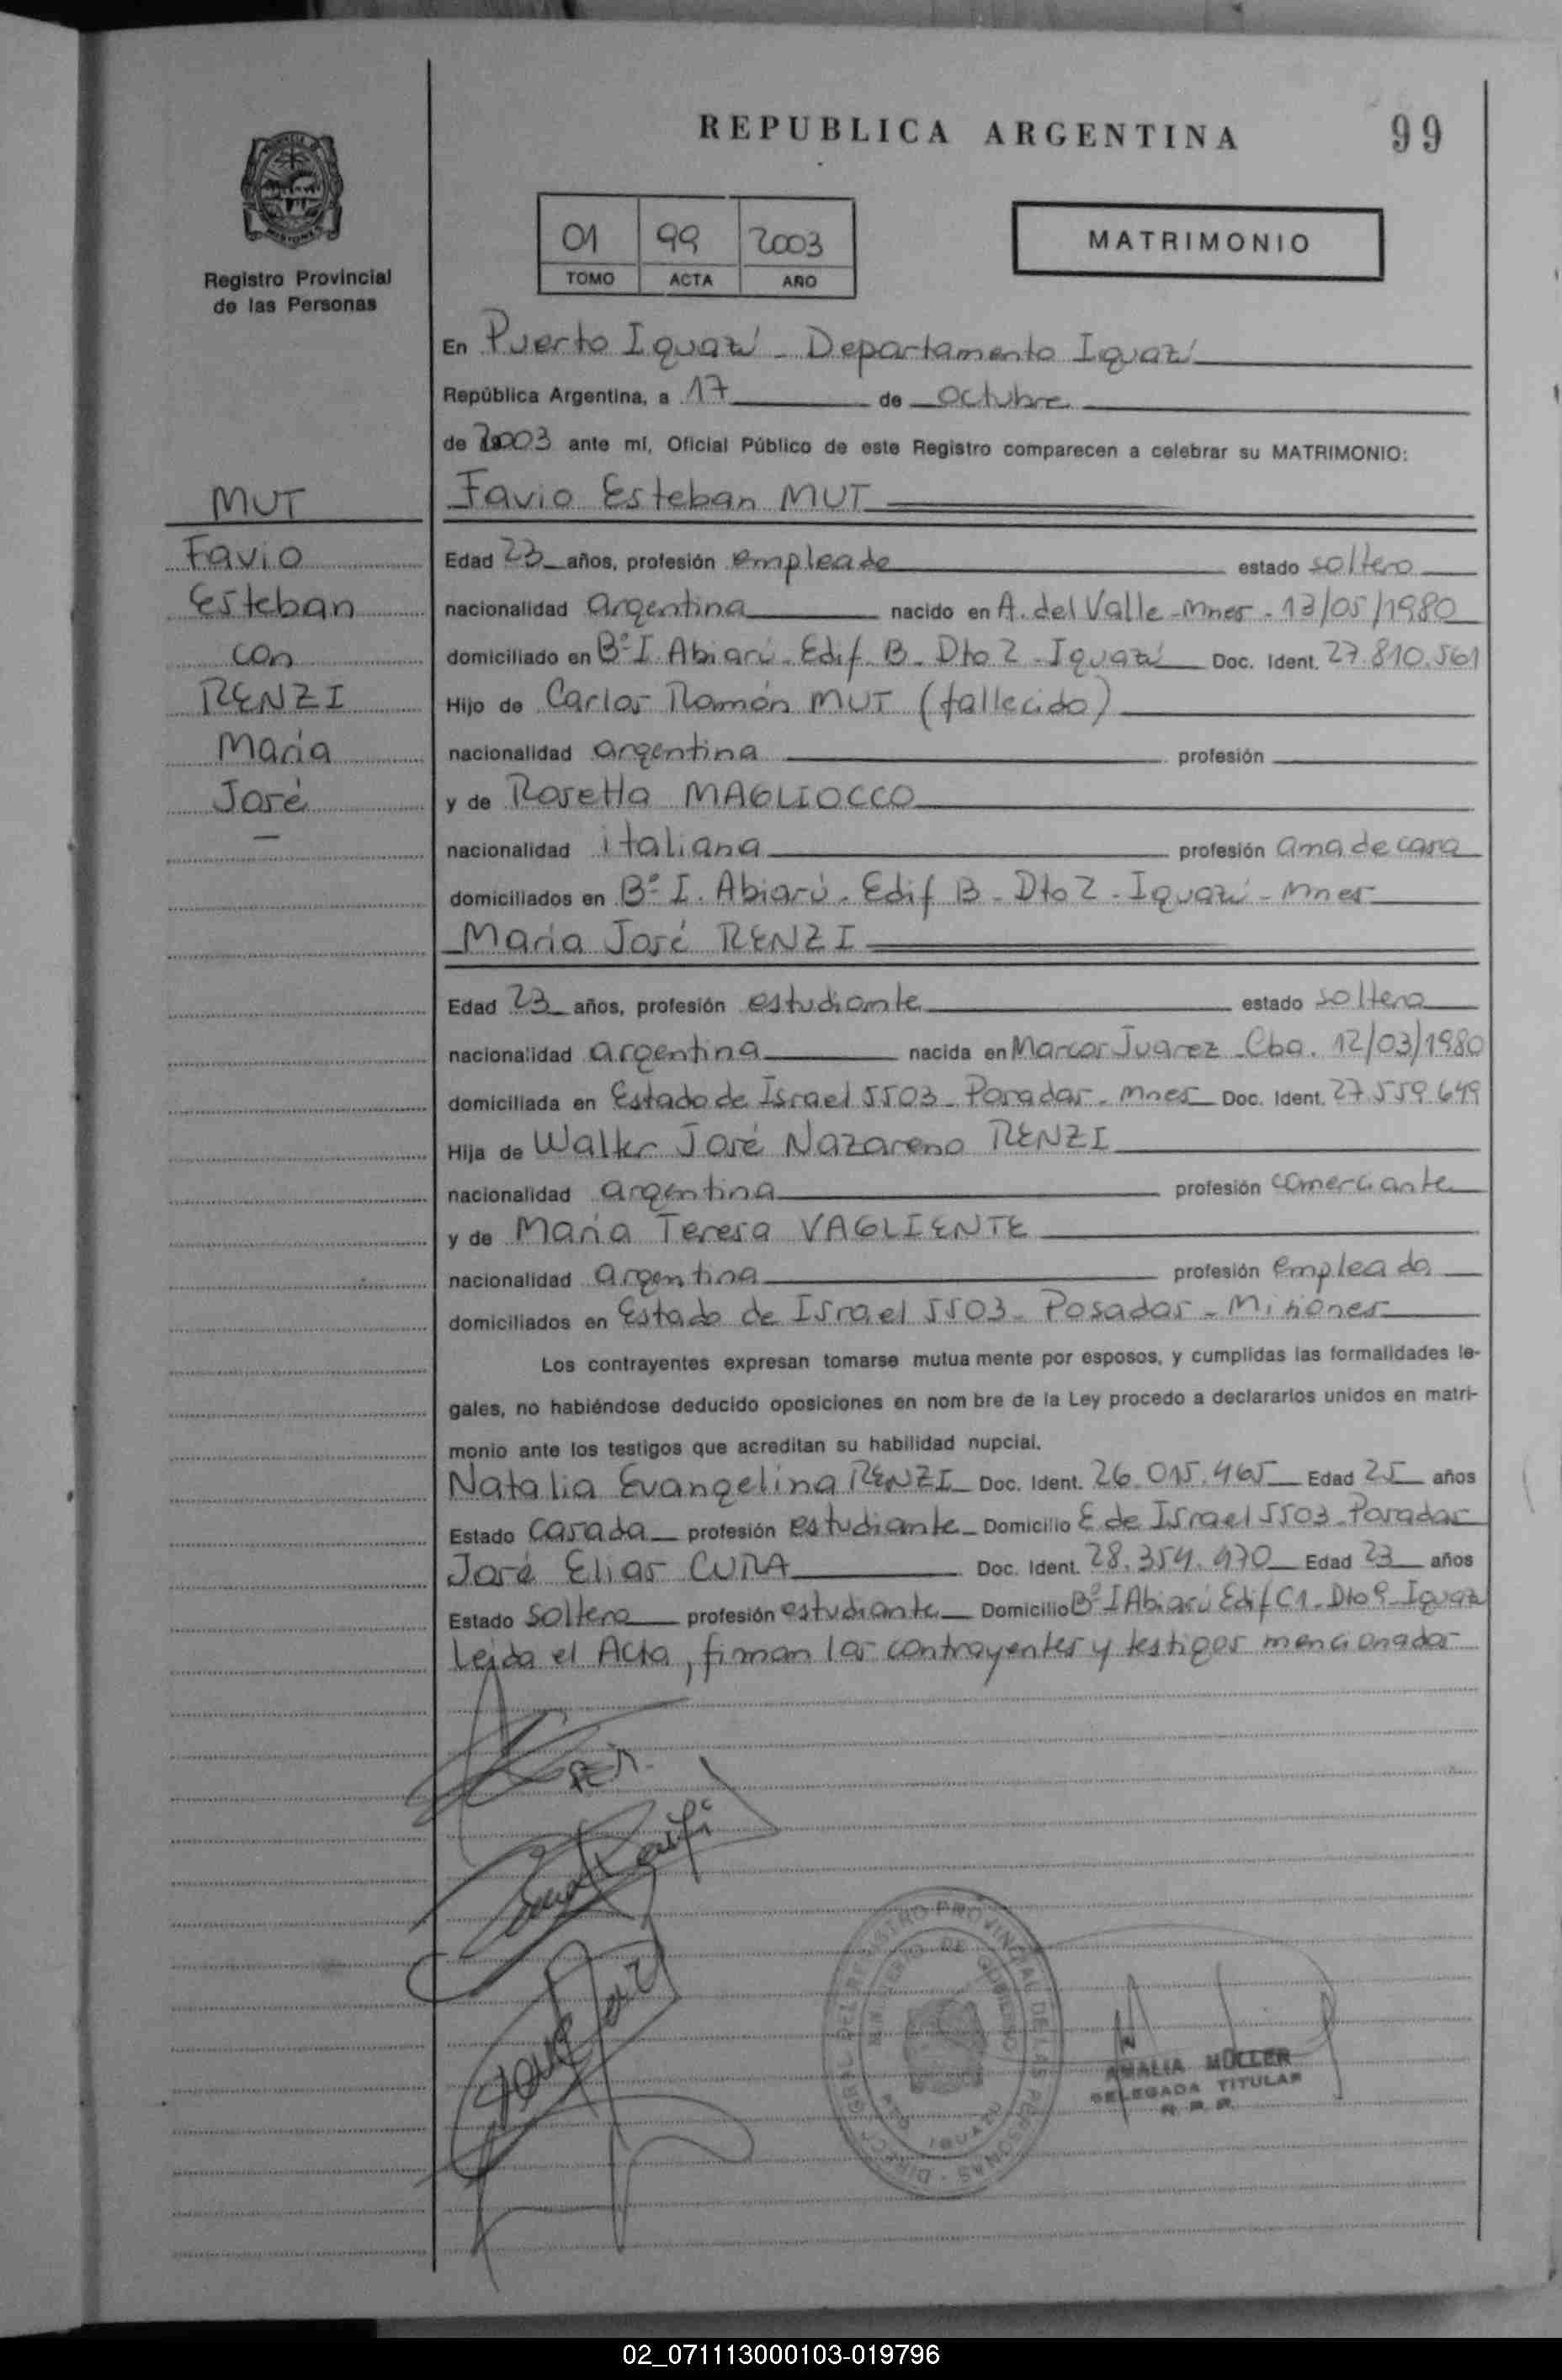 REPUBLICA ARGENTINA
99
Registro Provincial
de las Personas
01 99 2003
TOMO ACTA AÑO
MATRIMONIO
En Puerto Iguazú - Departamento Iguazú
República Argentina, a 17 de Octubre
de 2003 ante mí, Oficial Público de este Registro comparecen a celebrar su MATRIMONIO:
MUT
Favio
Esteban
con
RENZI
María
José
Favio Esteban MUT
Edad 23 años, profesión empleado estado soltero
nacionalidad argentina nacido en A. del Valle - Mnes - 13/05/1980
domiciliado en Bº I. Abiarú - Edif. B - Dto 2 - Iguazú Doc. Ident. 27.810.561
Hijo de Carlos Ramón MUT (fallecido)
nacionalidad argentina profesión
y de Rosetta MAGLIOCCO
nacionalidad italiana profesión ama de casa
domiciliados en Bº I. Abiarú - Edif B - Dto 2 - Iguazú - Mnes
María José RENZI
Edad 23 años, profesión estudiante estado soltera
nacionalidad argentina nacida en Marcos Juarez - Cba. 12/03/1980
domiciliada en Estado de Israel 5503 - Posadas - Mnes Doc. Ident. 27.559.649
Hija de Walter José Nazareno RENZI
nacionalidad argentina profesión comerciante
y de María Teresa VAGLIENTE
nacionalidad argentina profesión empleada
domiciliados en Estado de Israel 5503 - Posadas - Misiones
Los contrayentes expresan tomarse mutua mente por esposos, y cumplidas las formalidades le-
gales, no habiéndose deducido oposiciones en nom bre de la Ley procedo a declararlos unidos en matri-
monio ante los testigos que acreditan su habilidad nupcial.
Natalia Evangelina RENZI Doc. Ident. 26.015.465 Edad 25 años
Estado casada profesión estudiante Domicilio E de Israel 5503 - Posadas
José Elias CURA Doc. Ident. 28.354.970 Edad 23 años
Estado soltero profesión estudiante Domicilio Bº I Abiarú Edif C1 - Dto 9 - Iguazú
Leida el Acta, firman los contrayentes y testigos mencionados
DIREC. GRAL. DEL REGISTRO PROVINCIAL DE LAS PERSONAS
MINISTERIO DE GOBIERNO
IGUAZU
AMALIA MÜLLER
DELEGADA TITULAR
R. P. P.
02_071113000103-019796